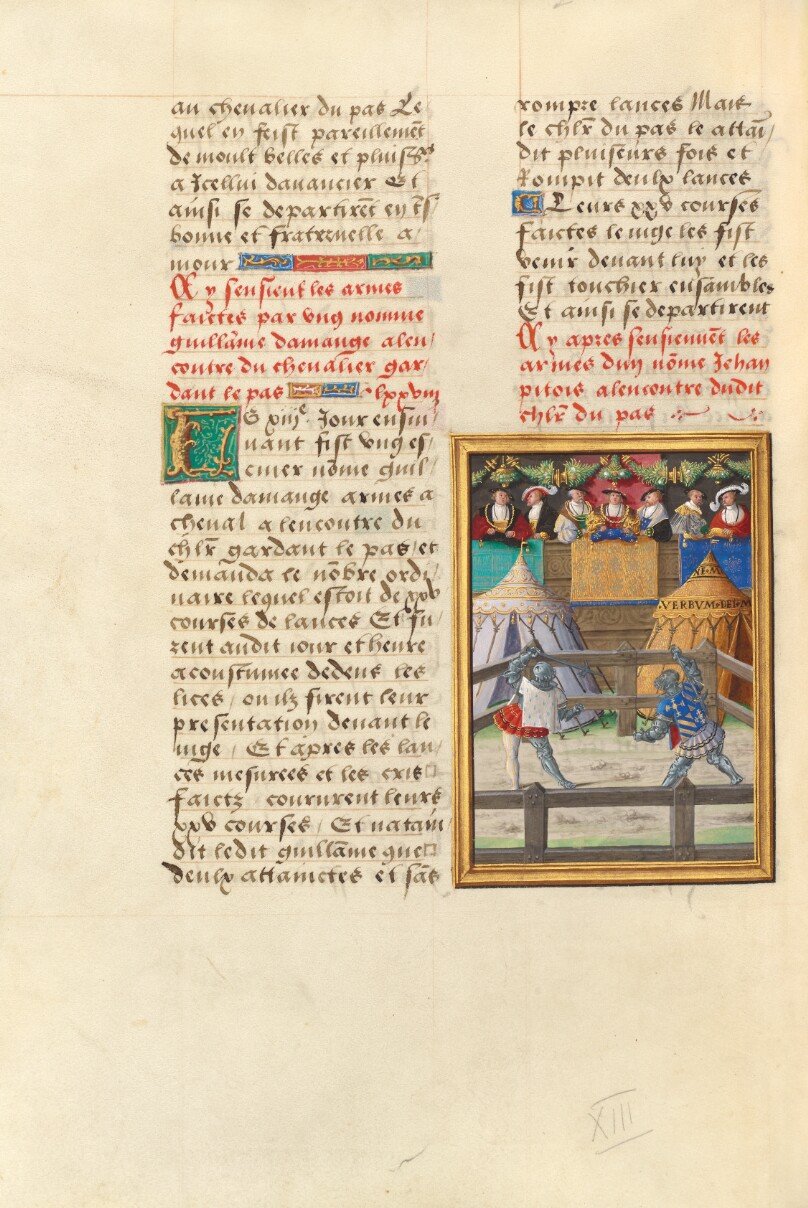 au chevalier du pas Le
quel en feist pareillemēt
de moult belles et pluiss̄
a Icellui davancier Et
ainsi se departirēt en ts̄
bonne et fraternelle a
mour
Cy sensieut les armes
faictes par vng nomme
guillāme damange alen
contre du chevalier gar
dant le pas lxxviij
Le xiijᵉ Jour ensui
uant fist vng es
cuier nōme guil
lame damange armes a
cheval a lencontre du
chlr̄ gardant le pas / et
demanda le nōbre ordi
naire lequel estoit de xxv
courses de lances Et fu
rent audit iour et heure
acoustumee dedens les
lices / ou ilz firent leur
presentation devant le
iuge / Et apres les lan
ces mesurees et les cris
faictz coururent leurs
xxv courses / Et natain
dit ledit guillāme que
deulx attainctes et sās
rompre lances Mais
le chlr̄ du pas le attai
dit pluiseurs fois et
Rompit deulx lances
Leurs xxv courses
faictes le iuge les fist
venir devant luy et les
fist touchier ensambles
Et ainsi se departirent
Cy apres sensieuuēt les
armes dun nōme Jehan
pitois alencontre dudit
chlr̄ du pas
NE M
VERBVM DEI M
XIII